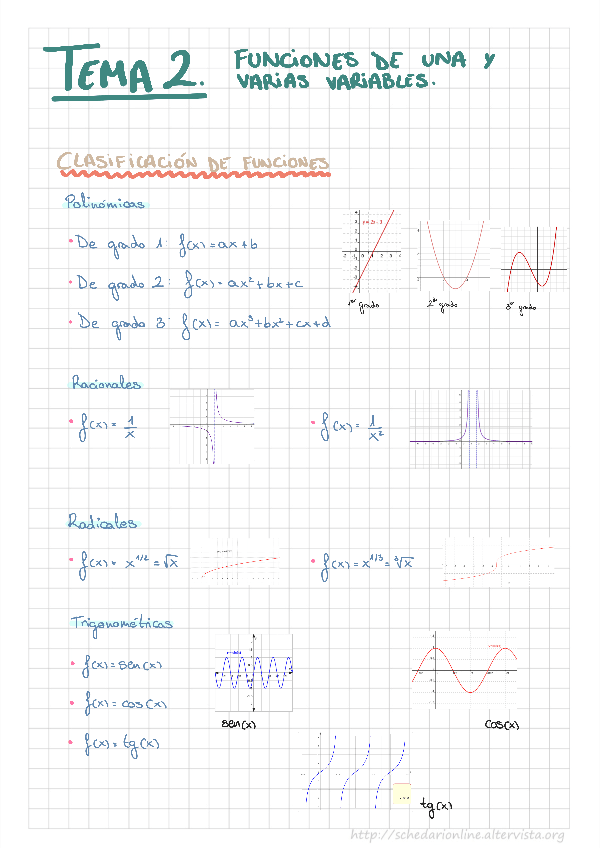 TEMA 2. FUNCIONES DE UNA Y
VARIAS VARIABLES.
CLASIFICACIÓN DE FUNCIONES
Polinómicas
• De grado 1: f(x)=ax+b
• De grado 2: f(x)=ax²+bx+c
• De grado 3: f(x)= ax³+bx²+cx+d
1er grado
2º grado
3er grado
Racionales
• f(x)= 1/x
• f(x)= 1/x²
Radicales
• f(x)= x^1/2 = √x
• f(x)= x^1/3 = ∛x
Trigonométricas
• f(x)=sen(x)
• f(x)= cos(x)
• f(x)= tg(x)
sen(x)
cos(x)
tg(x)
http://schedarionline.altervista.org